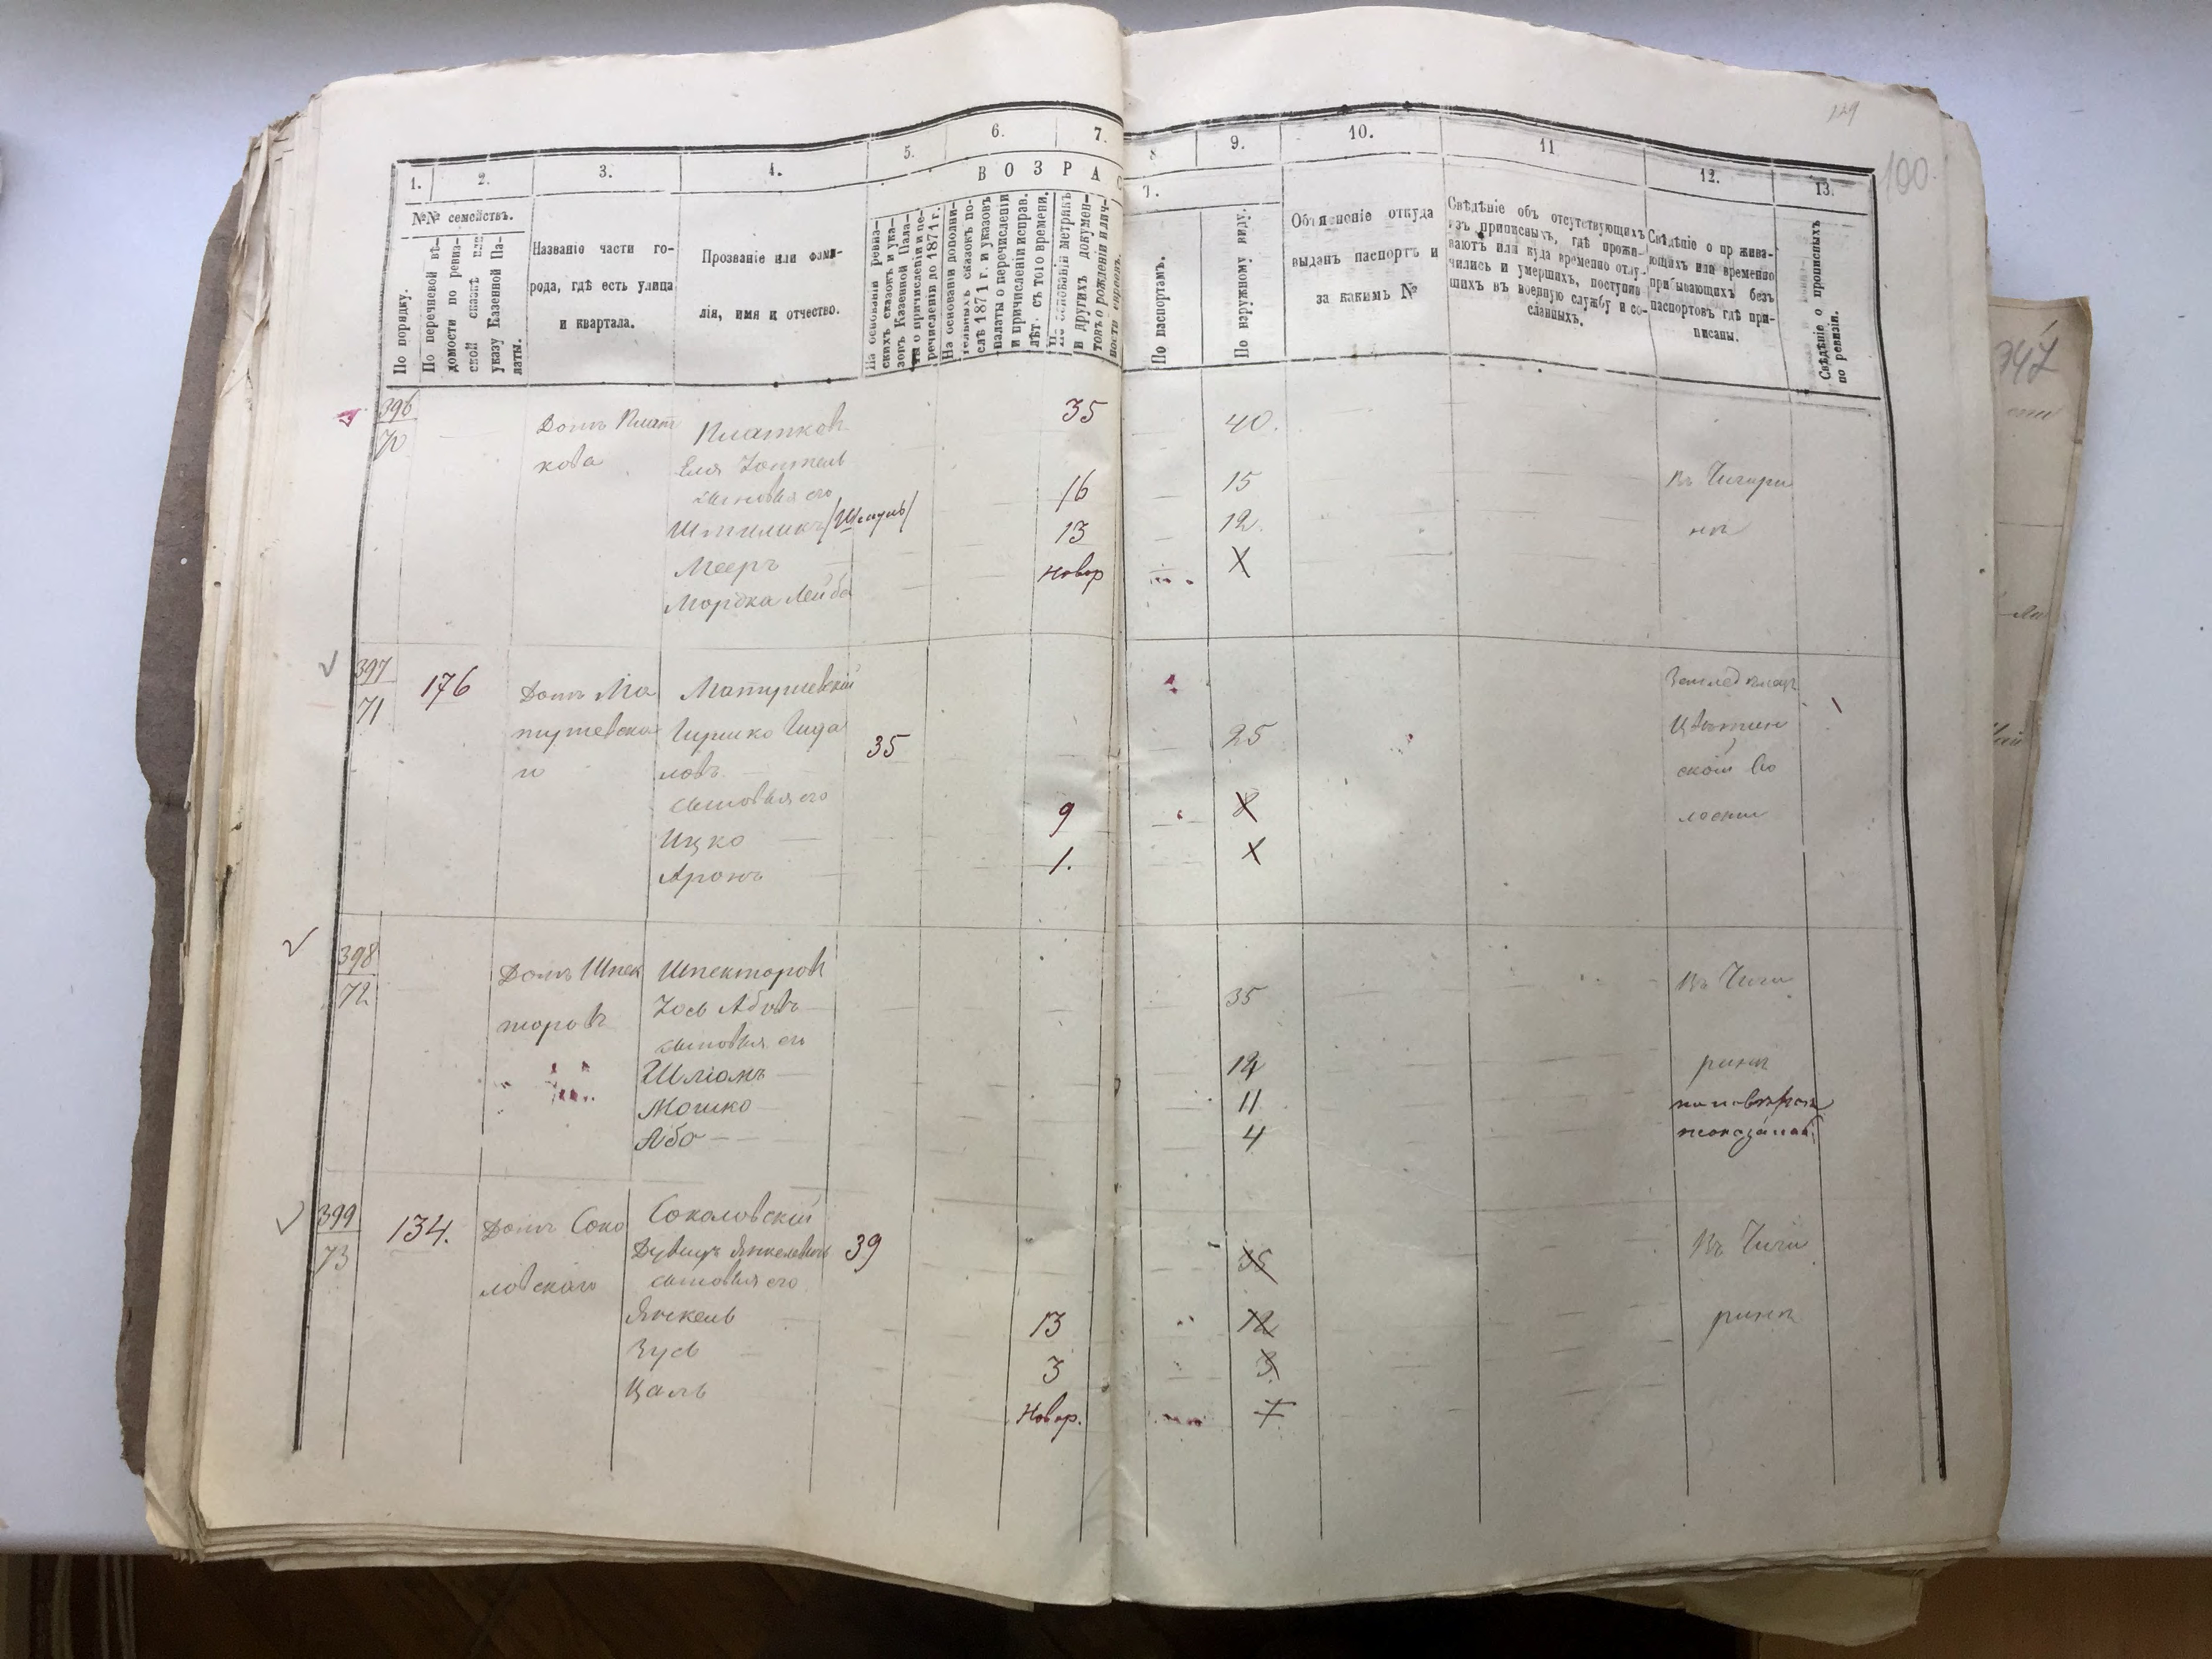 129
100
1.
2.
3.
4.
5.
6.
7.
8
9.
10.
11
12.
13.
ВОЗРА
№№ семействъ.
По порядку.
По перечневой вѣ-
домости по ревиз-
ской сказкѣ или
указу Казенной Па-
латы.
Названіе части го-
рода, гдѣ есть улица
и квартала.
Прозваніе или фами-
лія, имя и отчество.
На основаніи ревиз-
скихъ сказокъ и ука-
зовъ Казенной Пала-
ты о причисленіи и пе-
речисленіи до 1871 г.
На основаніи дополни-
тельныхъ сказокъ по-
слѣ 1871 г. и указовъ
палаты о перечисленіи
и причисленіи исправ.
лѣт. съ того времени.
По основаніи метрикъ
и другихъ докумен-
товъ о рожденіи и лич-
ности евреевъ.
По паспортамъ.
По наружному виду.
Объясненіе откуда
выданъ паспортъ и
за какимъ №
Свѣдѣніе объ отсутствующихъ
изъ приписныхъ, гдѣ прожи-
ваютъ или куда временно отлу-
чились и умершихъ, поступив-
шихъ въ военную службу и со-
сланныхъ.
Свѣдѣніе о прожива-
ющихъ или временно
прибывающихъ безъ
паспортовъ гдѣ при-
писаны.
Свѣдѣніе о прописныхъ
по ревизіи.
396
70
Домъ Плат
кова
Платковъ
Еля
сыновья его
Штиликъ (Шмуль)
Мееръ
Мордка Лейба
35
16
13
Новор
40.
15
12.
Х
Въ Чигири
нѣ
397
71
176
Домъ Ма
тушевска
го
Матушевскій
Гершко
ловъ
сыновья его
Ицко
Аронъ
35
9
1.
25
8
Х
Земледѣлецъ
ской во
лости
398
72
Домъ Шпек
торовъ
Шпекторовъ
Іось Абовъ
сыновья его
Шліомъ
Мошко
Або
35
12
11
4
Въ Чиги
ринѣ
399
73
134.
Домъ Соко
ловскаго
Соколовскій
Дувидъ Янкелевичъ
сыновья его
Янкель
Зусь
Цаль
39
13
3
Новор.
35
12
3
Въ Чиги
ринѣ
347